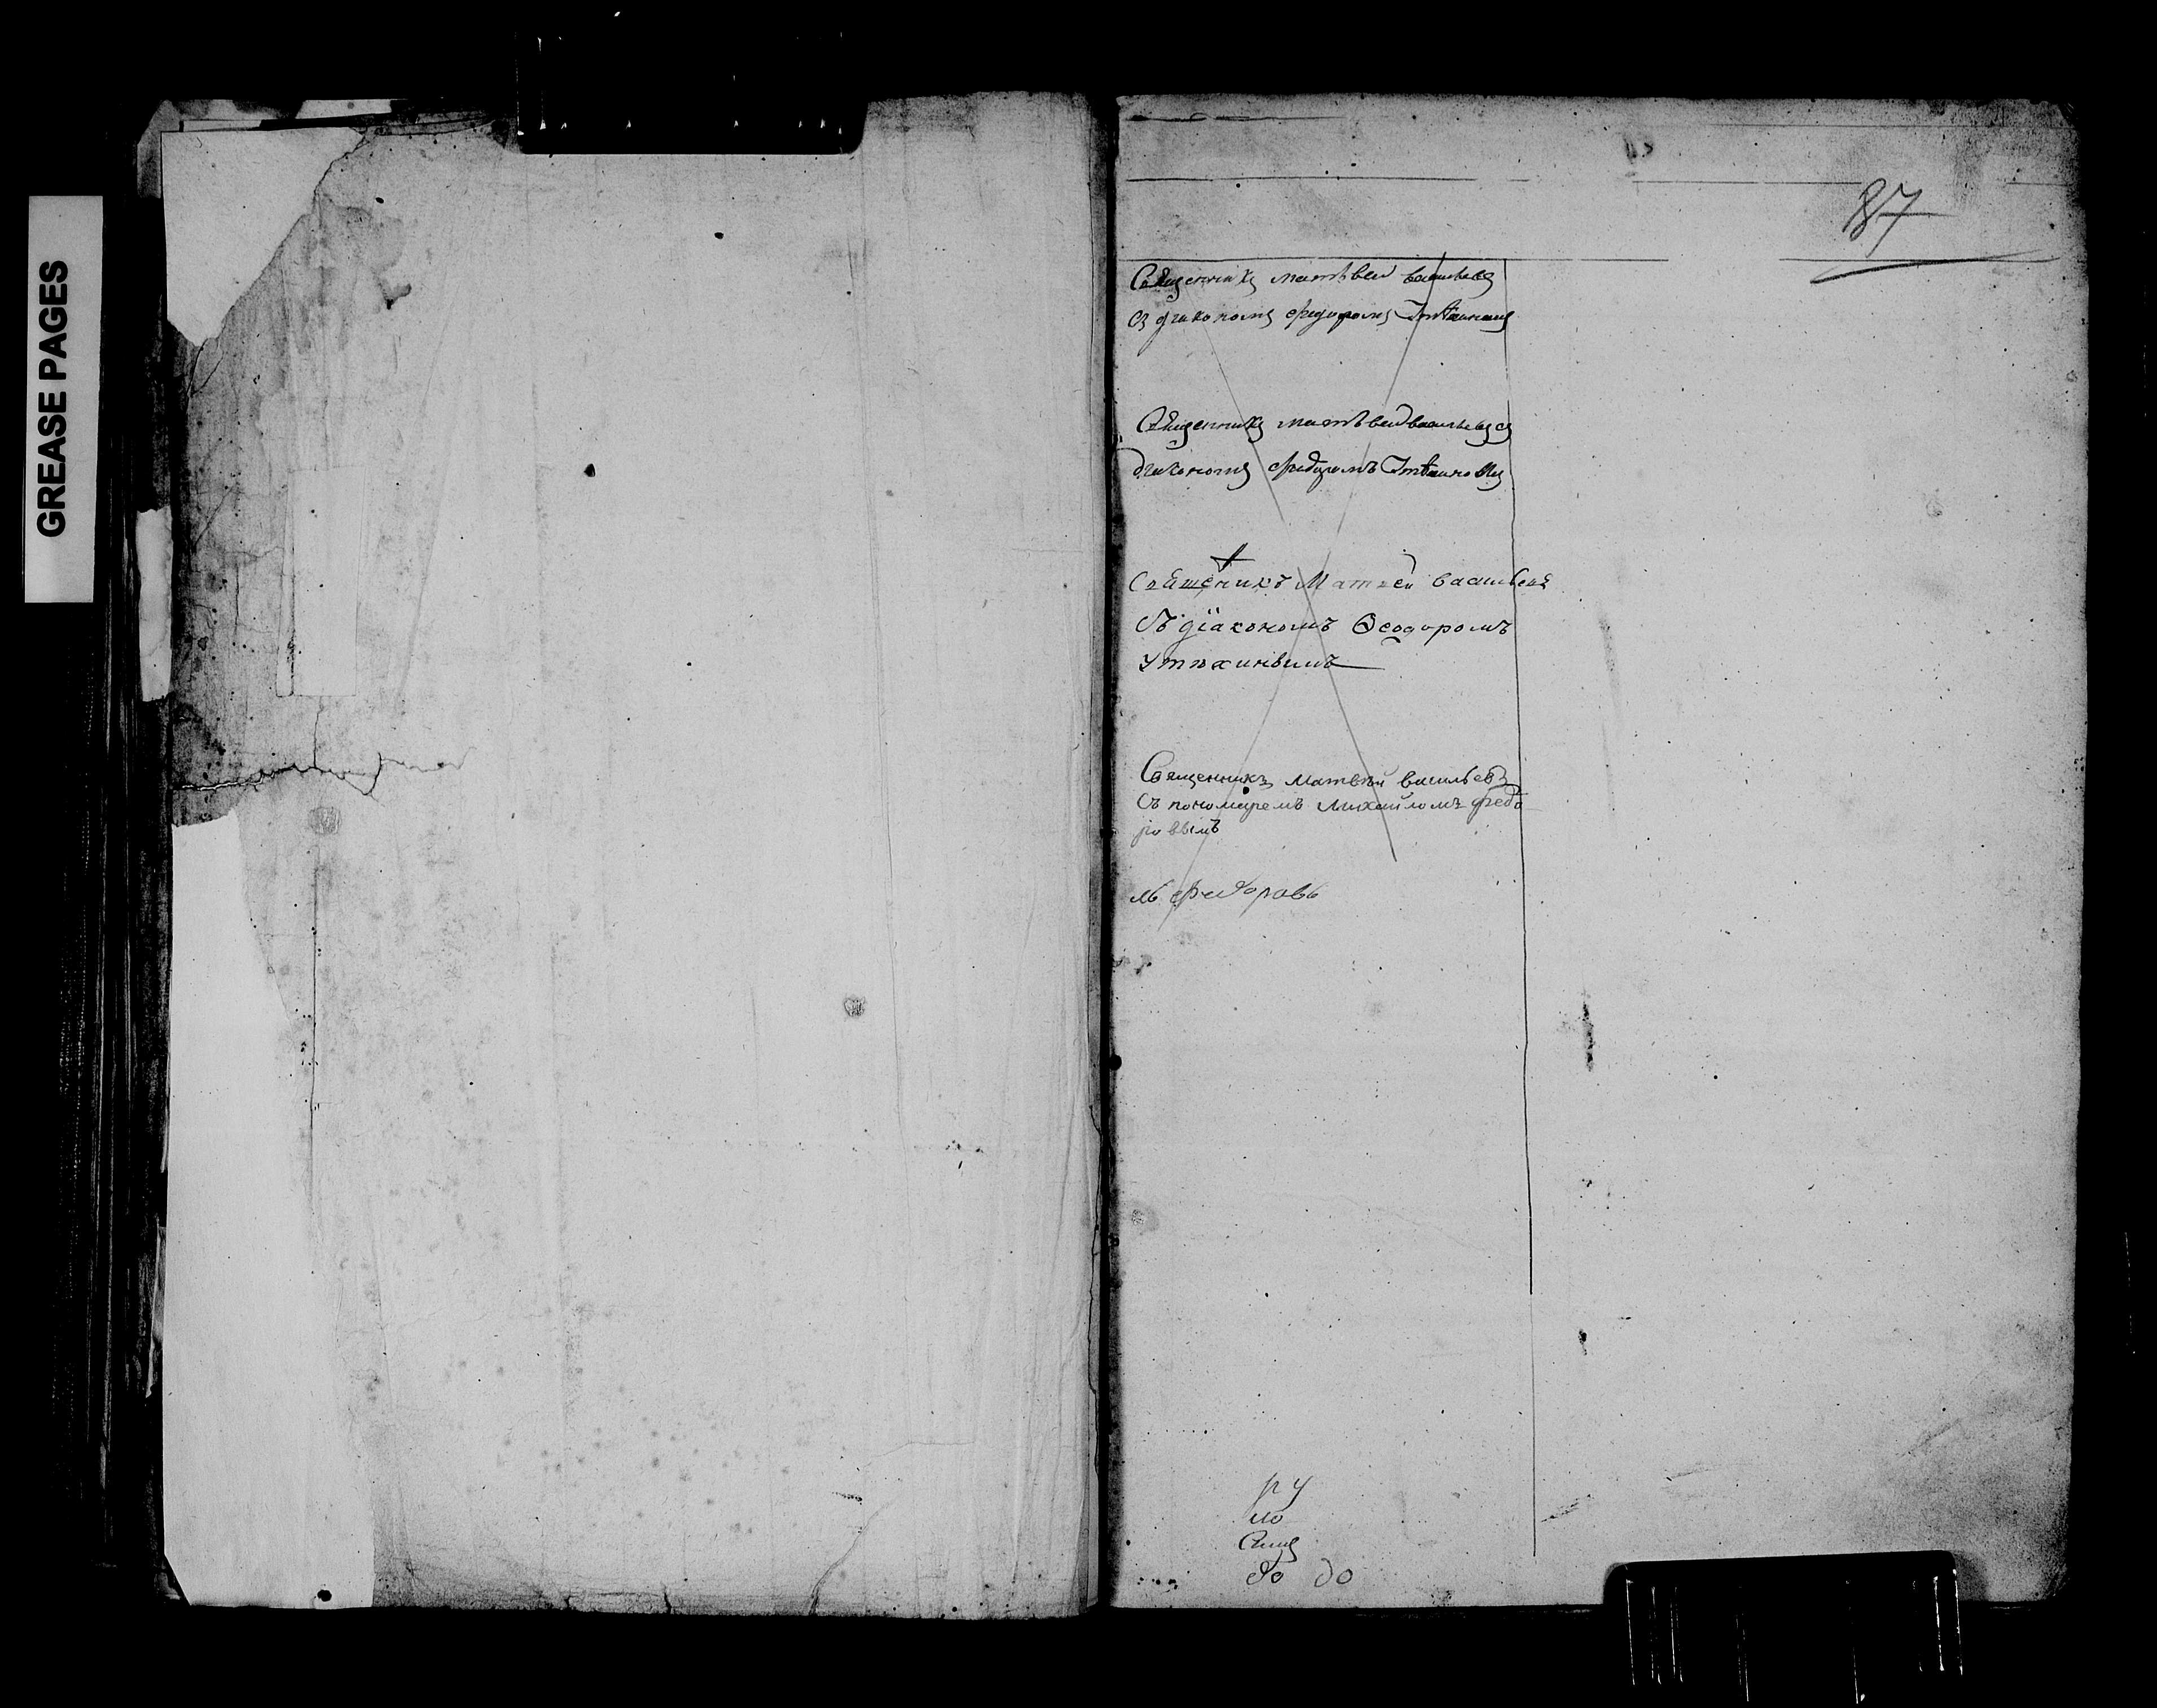 GREASE PAGES
87
Священникъ матѣвеи васильевъ
съ диакономъ федоромъ
Священникъ матѣвеи васильевъ съ
диакономъ федоромъ
Священикъ Матѳеи васильевъ
Съ діакономъ Ѳеодоромъ
утѣхинымъ
Священникъ матвѣй васильевъ
съ пономаремъ михайломъ федо
ровымъ
федоровъ
ру
мо
до до